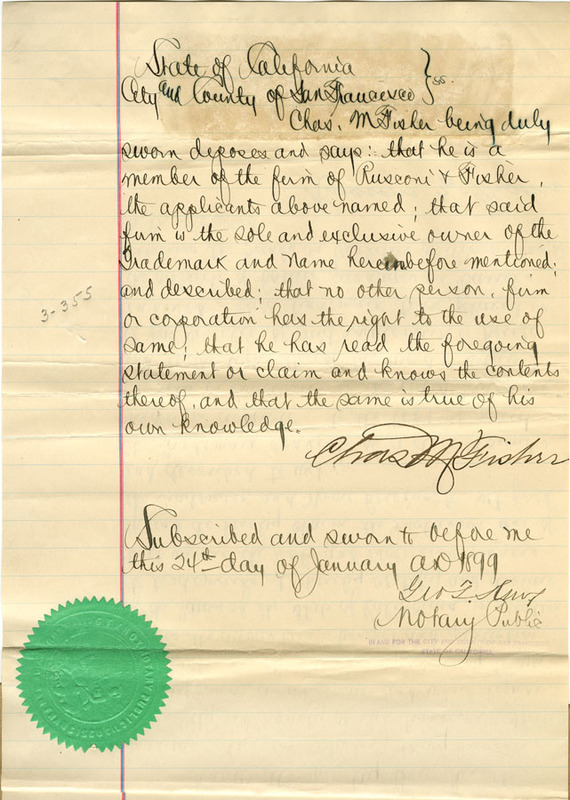 State of California
City and County of San Francesco } ss.
Chas. M Fisher being duly
sworn deposes and says: that he is a
member of the firm of Rusconi & Fisher,
the applicants above named; that said
firm is the sole and exclusive owner of the
Trademark and Name hereinbefore mentioned;
and described; that no other person, firm
or corporation has the right to the use of
same; that he has read the foregoing
statement or claim and knows the contents
thereof, and that the same is true of his
own knowledge.
3-355
Chas M Fisher
Subscribed and sworn to before me
this 24th day of January AD 1899
Geo T.
Notary Public
IN AND FOR THE CITY AND
STATE OF CALIFORNIA